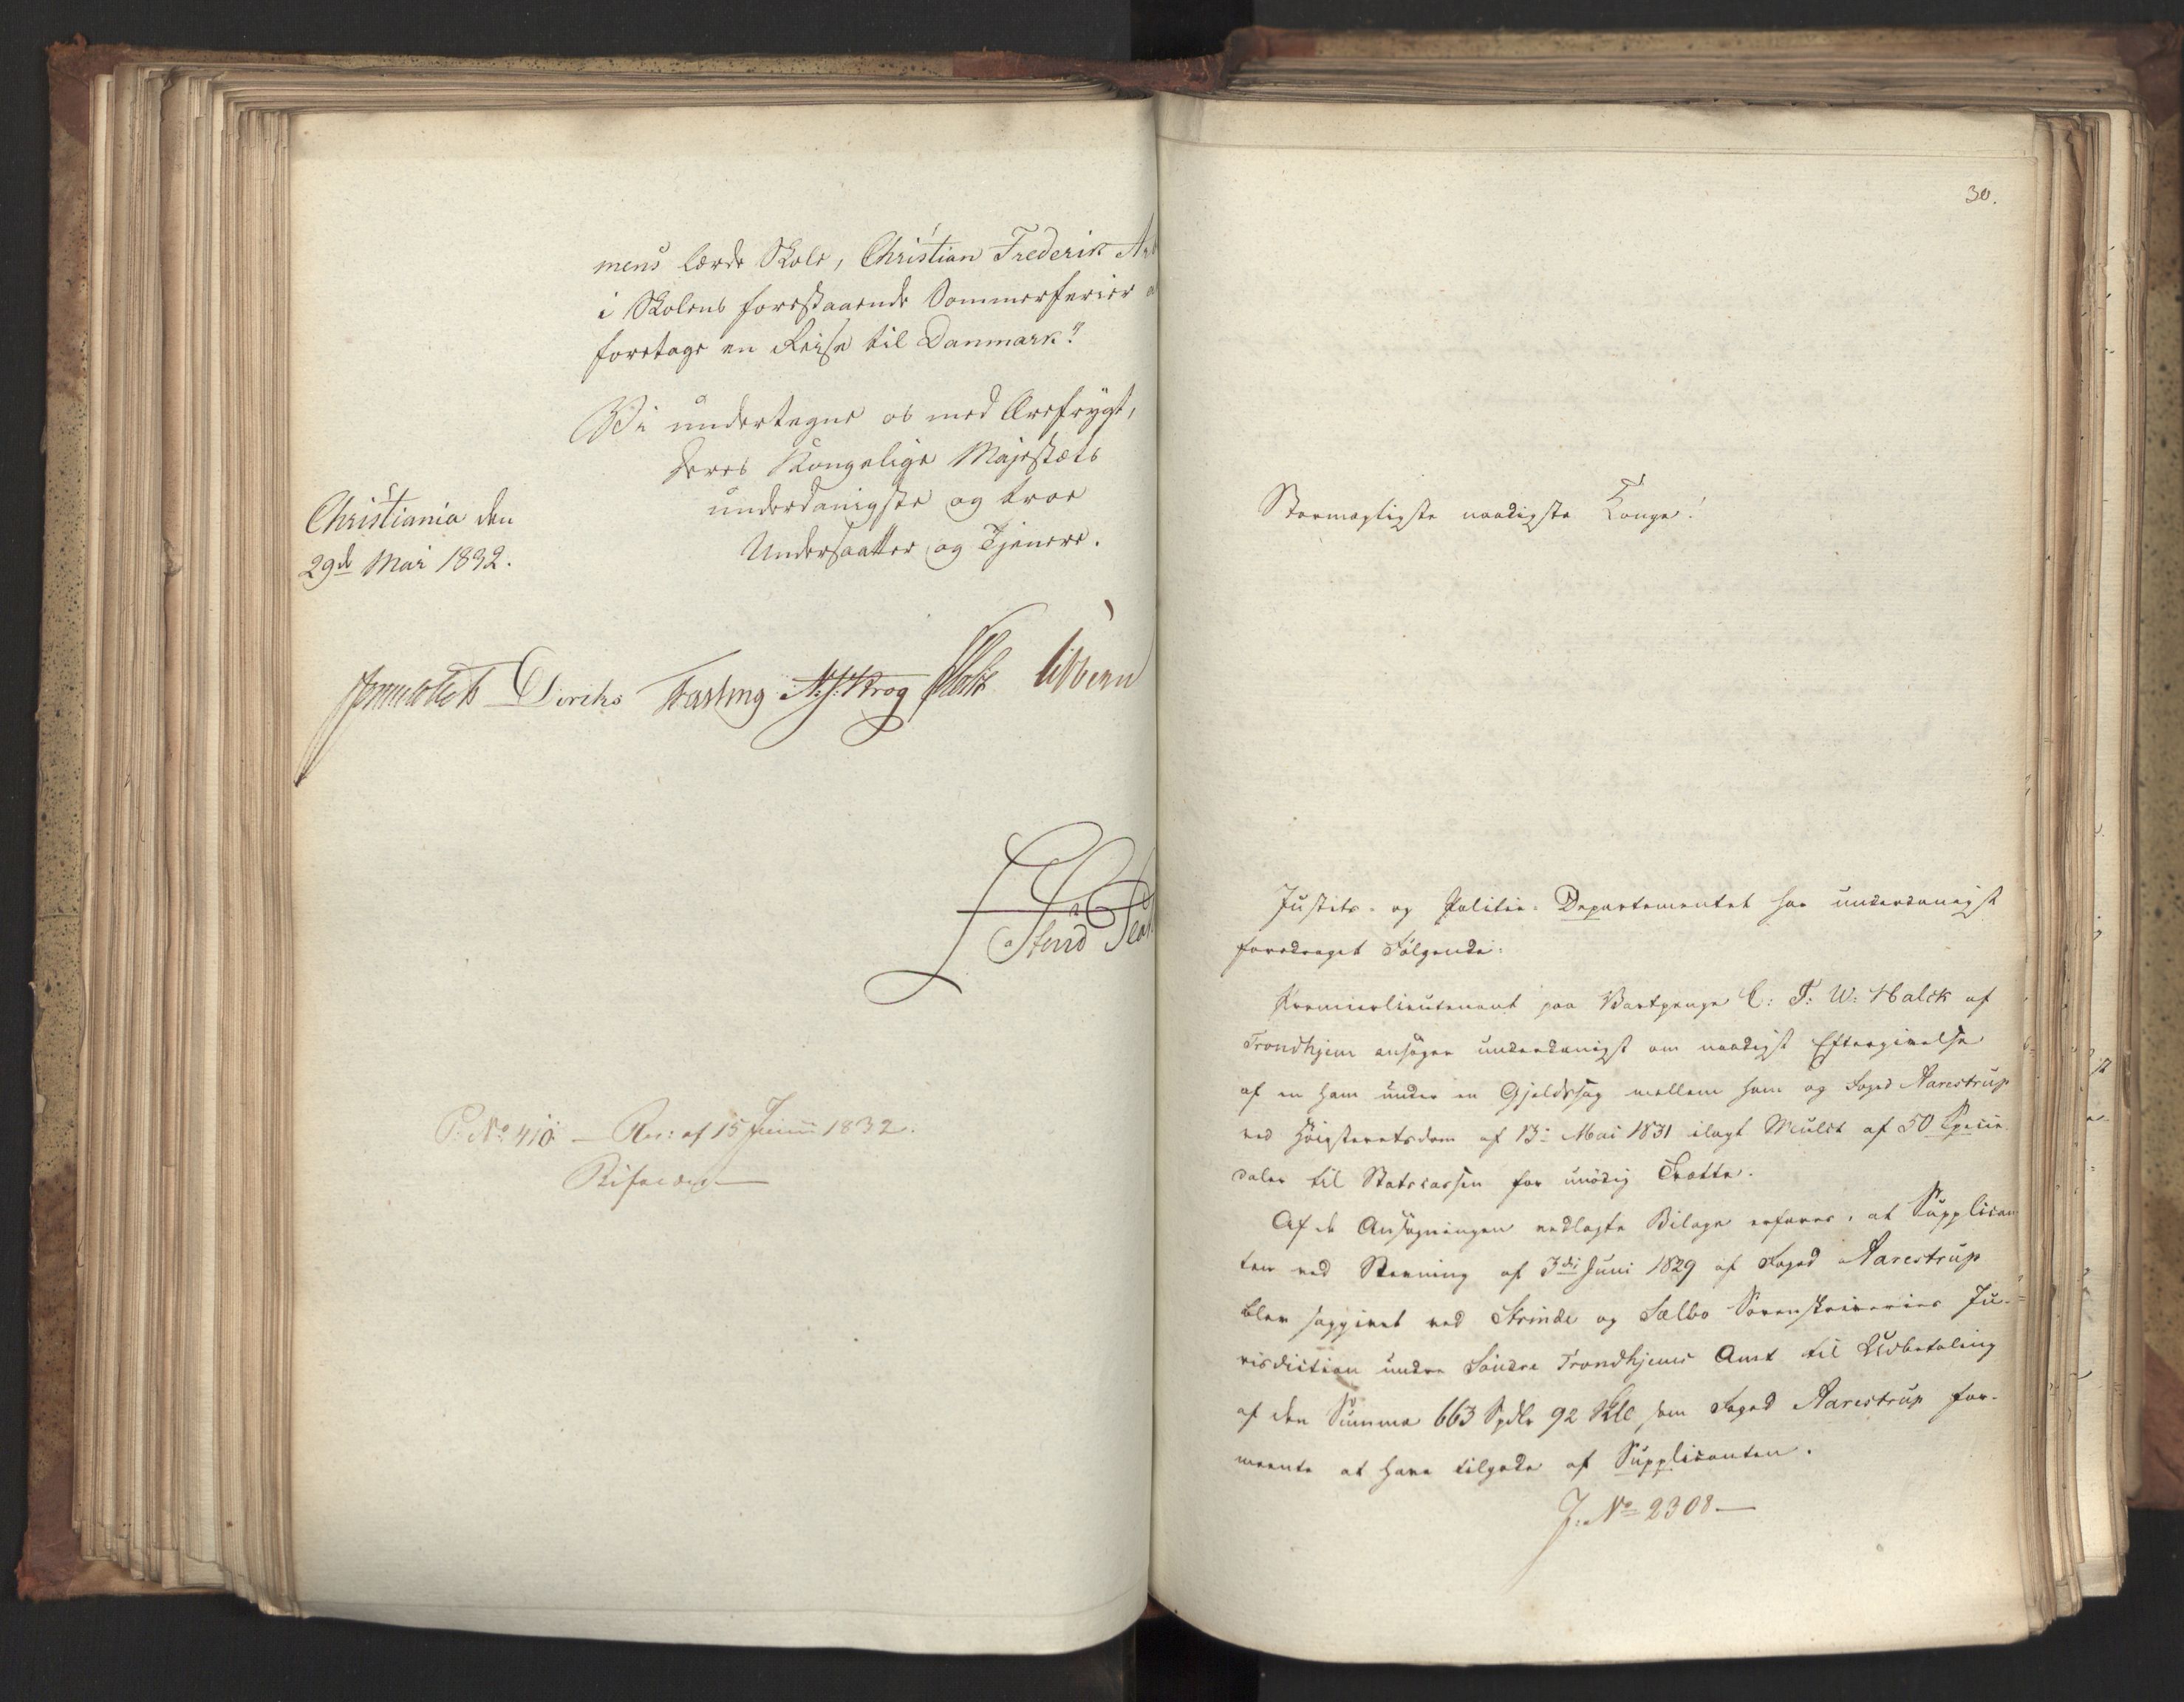 mens lærde Skole, Christian Frederik
i Skolens forestaaende Sommerferier
foretage en Reise til Danmark."
Vi undertegne os med Ærefrygt,
Deres Kongelige Majestæts
underdanigste og troe
Undersaatter og Tjenere.
Christiania den
29de Mai 1832.
Diriks Fasting Krog Holst Sibbern
P: No 410 – Res: af 15 Junii 1832.
30.
Stormægtigste naadigste Konge!
Justits- og Politie-Departementet har underdanigst
foredraget Følgende:
Premierlieutenant paa Vartpenge C: F: W: Halck af
Trondhjem ansøger underdanigst om naadigst Eftergivelse
af en ham under en Gjeldssag mellem ham og Foged Aarestrup
ved Høiesteretsdom af 13: Mai 1831 ilagt Mulct af 50 Specie
daler til Statscassen for unødig Trætte.
Af de Ansøgningen vedlagte Bilage erfares, at Supplican
ten ved Stevning af 3die Juni 1829 af Foged Aarestrup
blev sagsøgt ved Strinde og Sælbo Sorenskriveries Ju-
risdiction under Søndre Trondhjems Amt til Udbetaling
af den Summa 663 Spdlr 92 Skll, som Foged Aarestrup for-
meente at have tilgode af Supplicanten.
J: No 2308 —